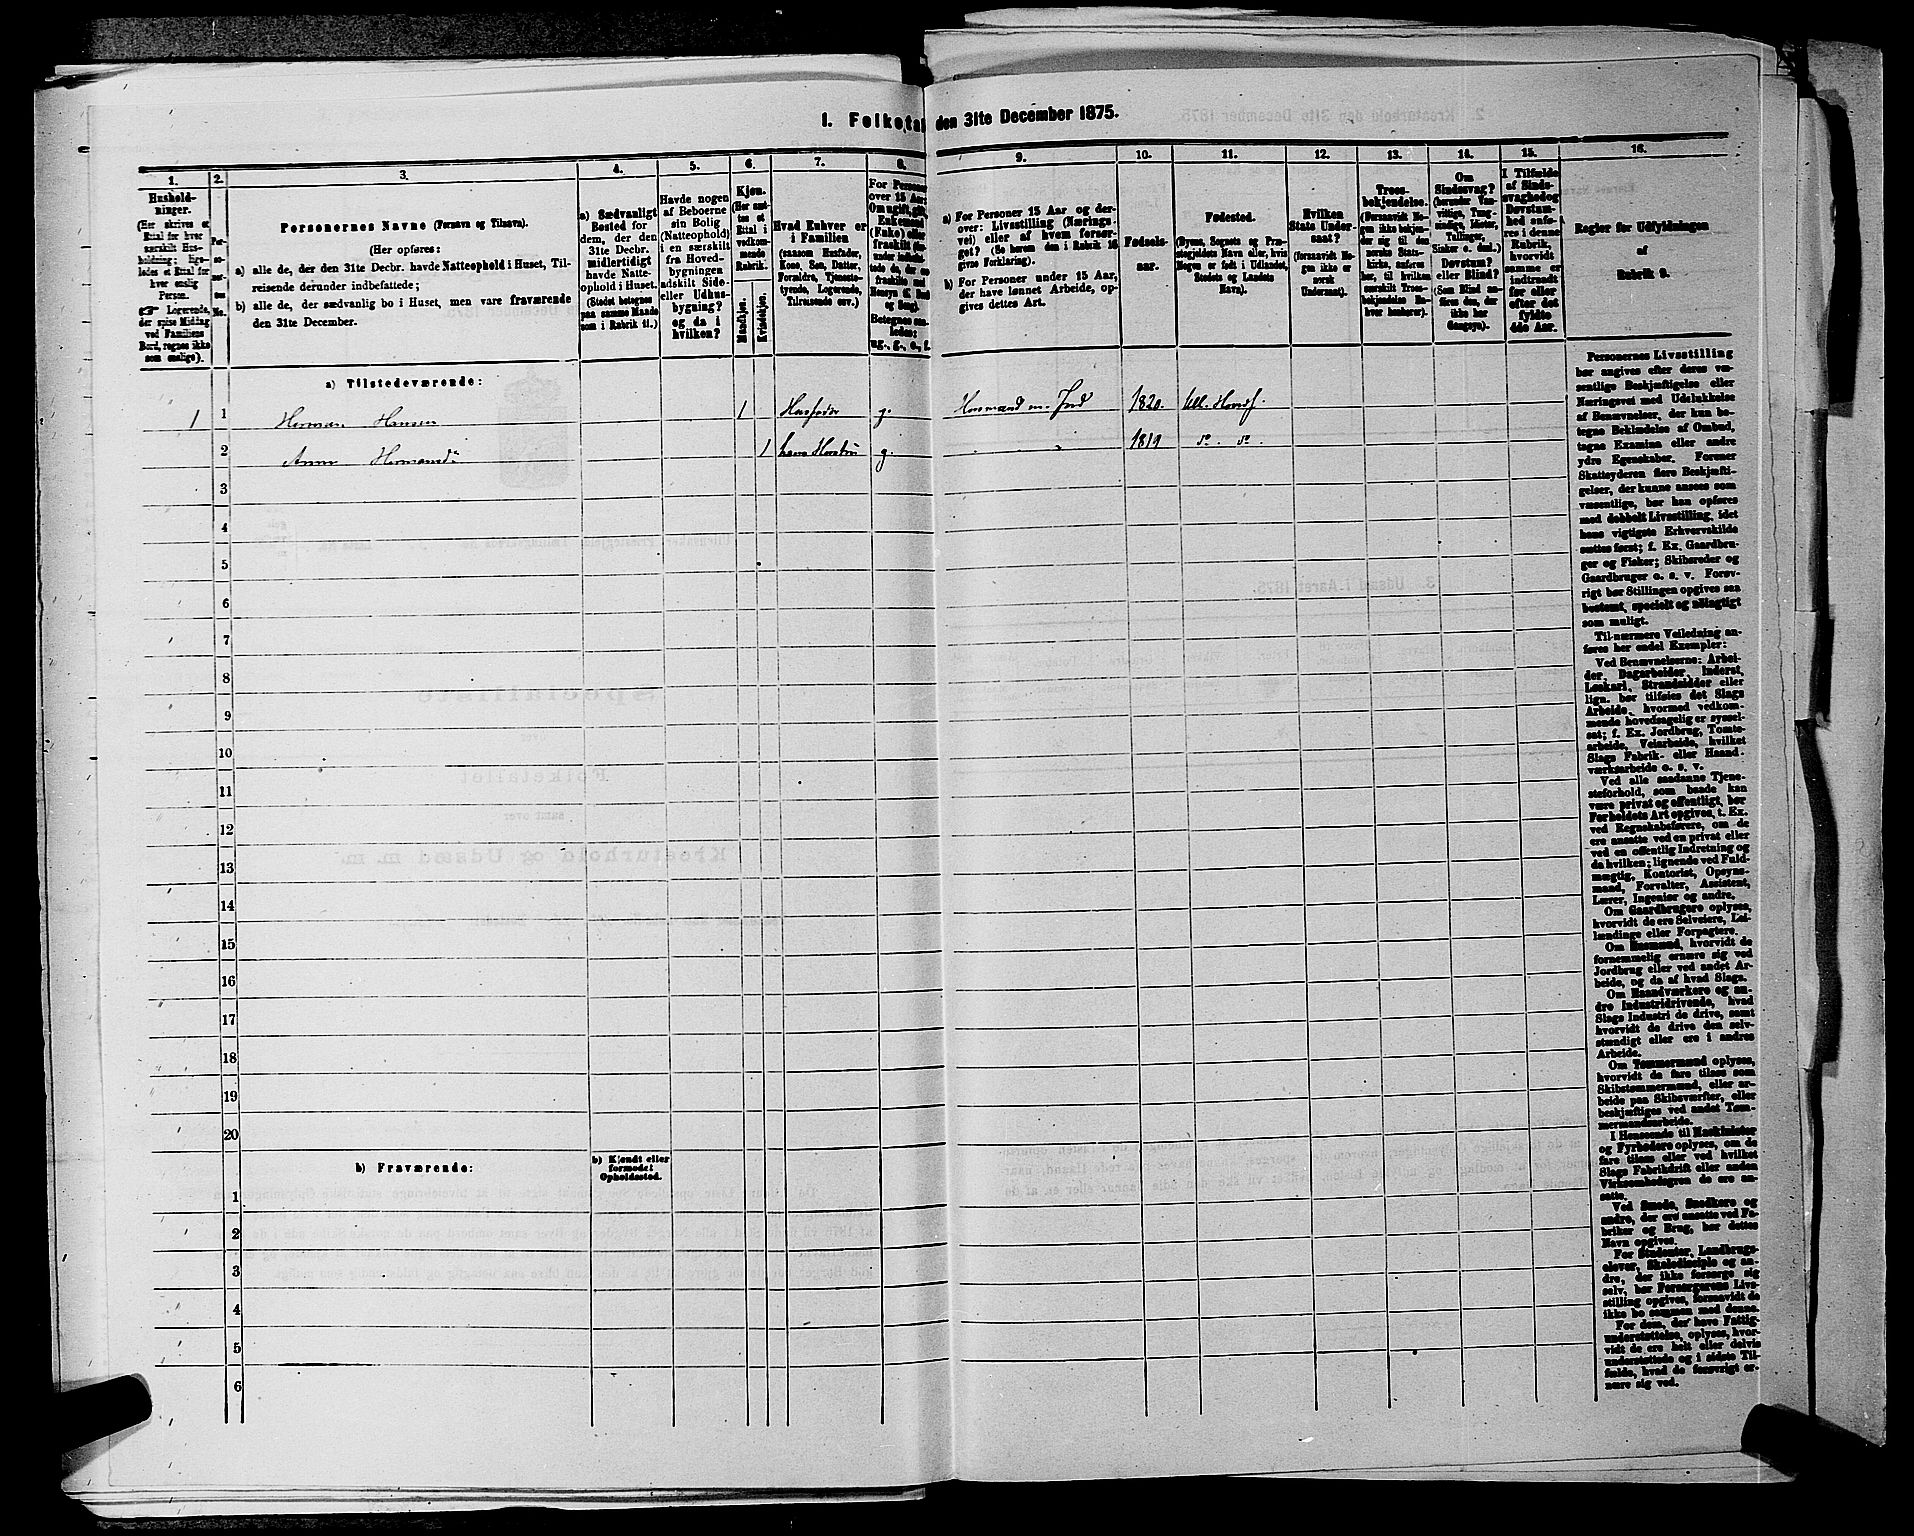 1. Folketal den 31te December 1875.
1.
2.
3.
4.
5.
6.
7.
8.
9.
10.
11.
12.
13.
14.
15.
16.
Hushold-
ninger.
(Her skrives et
Ettal for hver
særskilt Hus-
holdning; lige-
ledes et Ettal for
hver enslig
Person.
☞ Logerende,
der spise Middag
ved Familiens
Bord, regnes ikke
som enslige).
Per-
so-
ner-
nes
No.
Personernes Navne (Fornavn og Tilnavn).
(Her opføres:
a) alle de, der den 31te Decbr. havde Natteophold i Huset, Til-
reisende derunder indbefattede;
b) alle de, der sædvanlig bo i Huset, men vare fraværende
den 31te December.
a) Sædvanligt
Bosted for
dem, der den
31te Decbr.
midlertidigt
havde Natte-
ophold i Huset.
(Stedet betegnes
paa samme Maade
som i Rubrik 11.)
Havde nogen
af Beboerne
sin Bolig
(Natteophold)
i en særskilt
fra Hoved-
bygningen
adskilt Side-
eller Udhus-
bygning?
og da i
hvilken?
Kjøn.
(Her sæt-
tes et
Ettal i
vedkom-
mende
Rubrik.
Mandkjøn.
Kvindekjøn.
Hvad Enhver er
i Familien
(saasom Husfader,
Kone, Søn, Datter,
Forældre, Tjeneste-
tyende, Logerende,
Tilreisende osv.)
For Personer
over 15 Aar:
Om ugift, gift,
Enkemand
(Enke) eller
fraskilt
Betegnes saa-
ledes:
ug., g., e., f.
a) For Personer 15 Aar og der-
over: Livsstilling (Nærings-
vei) eller af hvem forsør-
get? (Se herom den i Rubrik 16
givne Forklaring).
b) For Personer under 15 Aar,
der have lønnet Arbeide, op-
gives dettes Art.
Fødsels-
aar.
Fødested.
(Byens, Sognets og Præ-
stegjeldets Navn eller, hvis
Nogen er født i Udlandet,
Stedets og Landets
Navn).
Hvilken
Stats Under-
saat?
(forsaavidt No-
gen ikke er
norsk
Undersaat).
Troes-
bekjendelse.
(Forsaavidt No-
gen ikke bekjen-
der sig til den
norske Stats-
kirke, anføres
her, til hvilken
særskilt Troes-
bekjendelse En-
hver henhører).
Om
Sindssvag?
(herunder Van-
vittige, Tung-
sindige, Idioter,
Tullinger,
Sinker o. desl.)
Døvstum?
eller Blind?
(Som Blind an-
føres den, der
ikke har
Gangsyn).
I Tilfælde
af Sinds-
svaghed og
Døvstum-
hed anfø-
res i denne
Rubrik,
hvorvidt
samme er
indtraadt
før eller
efter det
fyldte
4de Aar.
Regler for Udfyldningen
af
Rubrik 9.
a) Tilstedeværende:
1 1 Herman Hansen 1 Husfader g. Husmand m. Jord 1820. Ull. Hovds.
2 Anne Hermansd 1 hans Hustru g. " 1819 do. do.
3
4
5
6
7
8
9
10
11
12
13
14
15
16
17
18
19
20
b) Fraværende:
b) Kjendt eller
formodet
Opholdssted.
1
2
3
4
5
6
Personernes Livsstilling
bør angives efter deres væ-
sentlige Beskjæftigelse eller
Næringsvei med Udelukkelse
af Benævnelser, der kun be-
tegne Beklædelse af Ombud,
tagne Examina eller andre
ydre Egenskaber. Forener
Skatteyderen flere Beskjæfti-
gelser, der kunne ansees som
væsentlige, bør han opføres
med dobbelt Livsstilling, idet
hans vigtigste Erhvervskilde
sættes først; f. Ex. Gaardbru-
ger og Fisker; Skibsreder og
Gaardbruger o. s. v. Forøv-
rigt bør Stillingen opgives saa
bestemt, specielt og nøiagtigt
som muligt.
Til nærmere Veiledning an-
føres her endel Exempler:
Ved Benævnelserne: Arbei-
der, Dagarbeider, Inderst,
Løskarl, Strandsidder eller
lign. bør tilføies det Slags
Arbeide, hvormed vedkom-
mende hovedsagelig er syssel-
sat; f. Ex. Jordbrug, Tomte-
arbeide, Veiarbeide, hvilket
Slags Fabrik- eller Haand-
værksarbeide o. s. v.
Ved alle saadanne Tjene-
steforhold, som baade kan
være privat og offentligt, bør
Forholdets Art opgives, t. Ex.
ved Regnskabsførere, om de
ere ansatte ved en privat eller
ved en offentlig Indretning og
da hvilken; lignende ved Fuld-
mægtig, Kontorist, Opsyns-
mand, Forvalter, Assistent,
Lærer, Ingeniør og andre.
Om Gaardbrugere oplyses,
hvorvidt de ere Selveiere, Lei-
lændinge eller Forpagtere.
Om Husmænd, hvorvidt de
fornemmelig ernære sig ved
Jordbrug eller ved andet Ar-
beide, og da af hvad Slags.
Om Haandværkere og an-
dre Industridrivende, hvad
Slags Industri de drive, samt
hvorvidt de drive den selv-
stændigt eller ere i andres
Arbeide.
Om Tømmermænd oplyses,
hvorvidt de fare tilsøs som
Skibstømmermænd, eller ar-
beide paa Skibsværfter, eller
beskjæftiges ved andet Tøm-
mermandsarbeide.
I Henseende til Maskinister
og Fyrbødere oplyses, om de
fare tilsøs eller ved hvilket
Slags Fabrikdrift eller anden
Virksomhedsgren de ere an-
satte.
Ved Smede, Snedkere og
andre, der ere ansatte ved Fa-
briker og Brug, bør dettes
Navn opgives.
For Studenter, Landbrugs-
elever, Skoledisciple og an-
dre, der ikke forsørge sig
selv, bør Forsørgerens Livs-
stilling opgives, forsaavidt de
ikke bo sammen med denne.
For dem, der have Fattig-
understøttelse, oplyses, hvor-
vidt de ere helt eller delvis
understøttede og i sidste Til-
fælde, hvad de forøvrigt er-
nære sig ved.